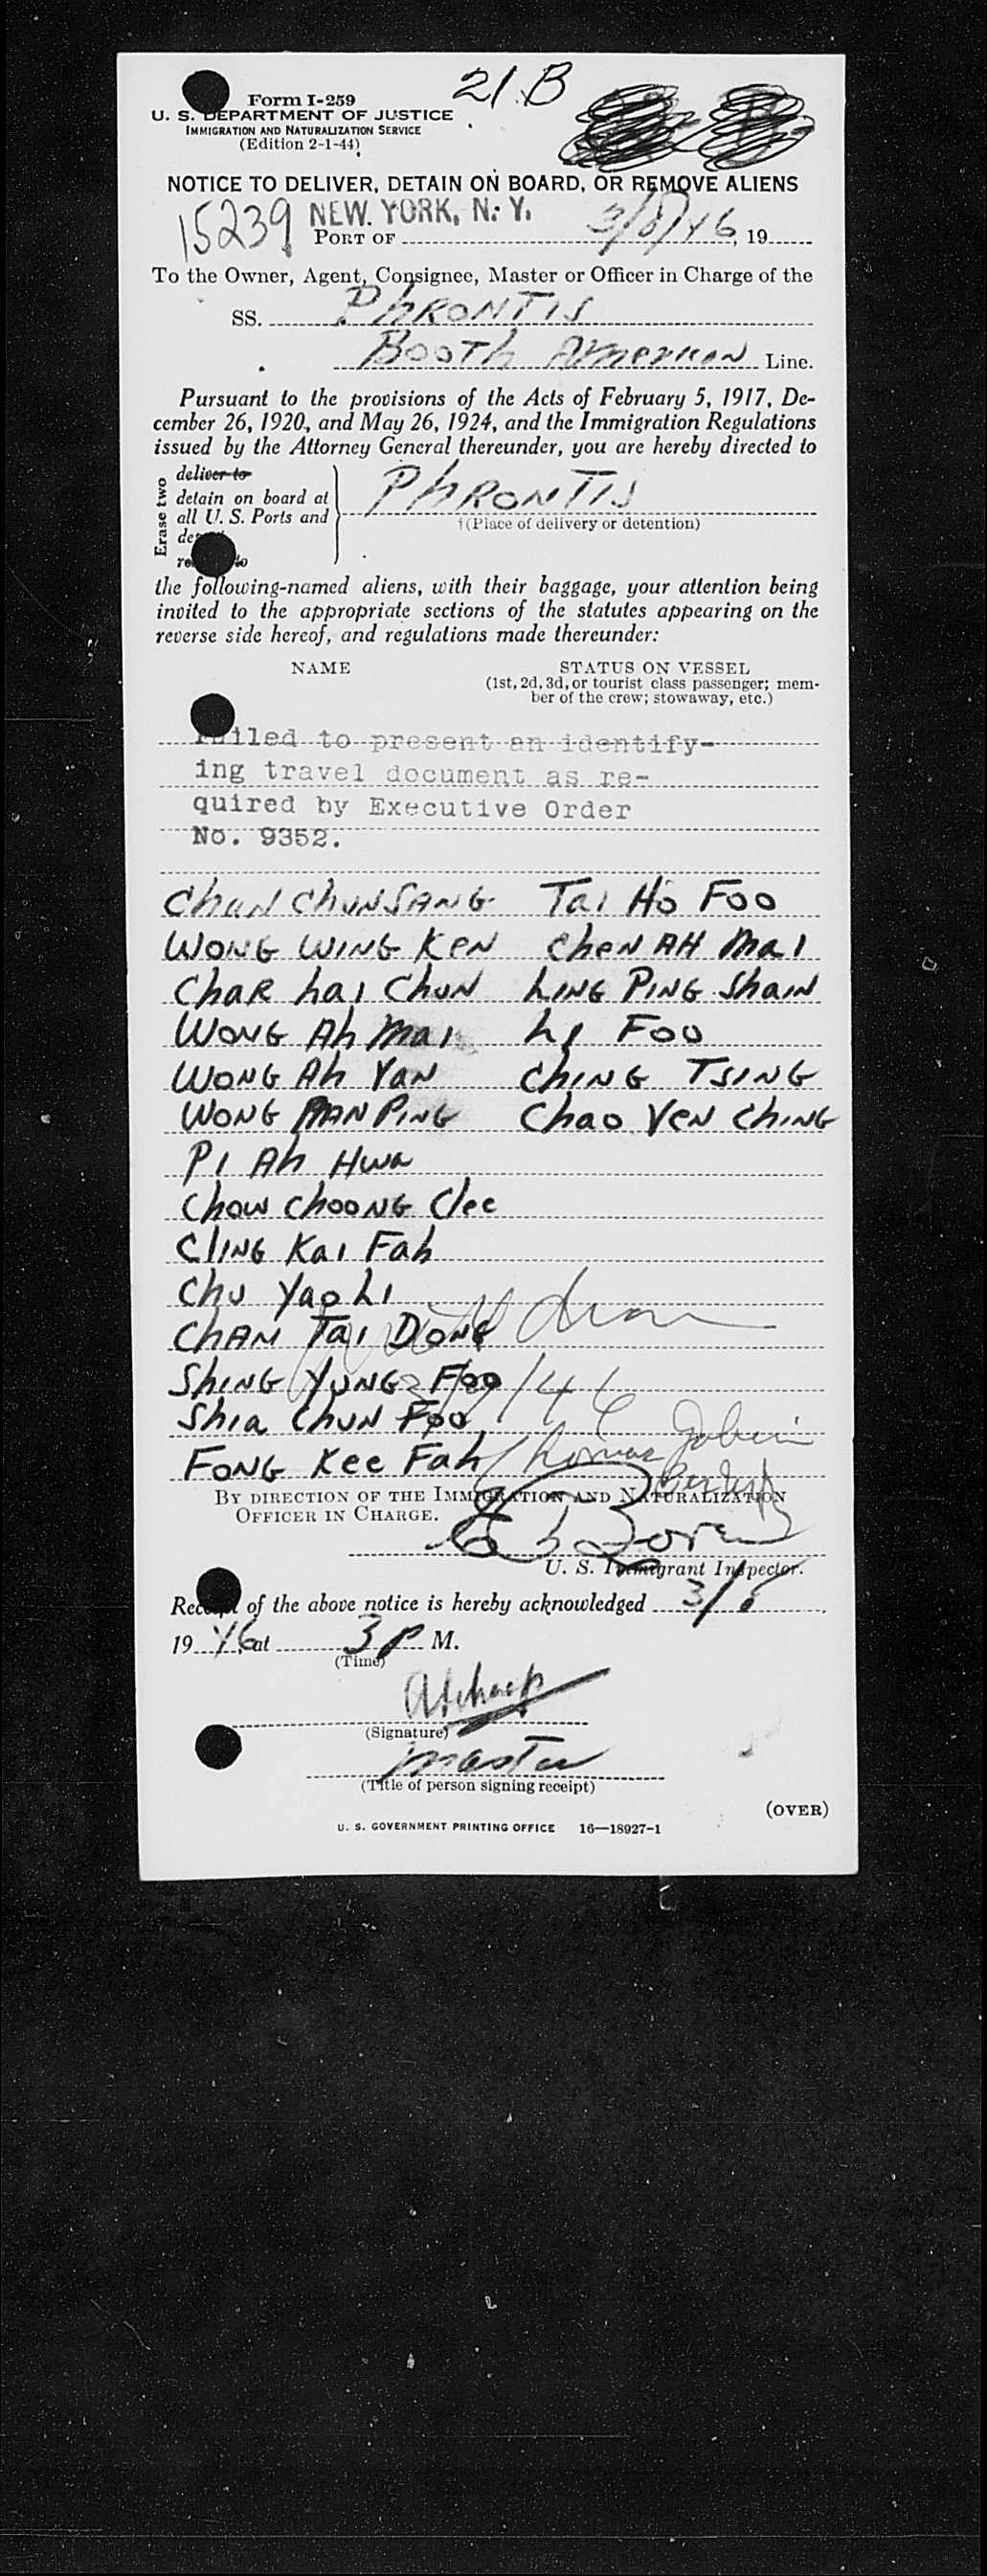 21 B
Form I-259
U. S. DEPARTMENT OF JUSTICE
IMMIGRATION AND NATURALIZATION SERVICE
(Edition 2-1-44)
NOTICE TO DELIVER, DETAIN ON BOARD, OR REMOVE ALIENS
15239 NEW YORK, N. Y.
PORT OF 3/8/46, 19
To the Owner, Agent, Consignee, Master or Officer in Charge of the
SS. PhRONTIS
BOOTh AmerIcaN Line.
Pursuant to the provisions of the Acts of February 5, 1917, De-
cember 26, 1920, and May 26, 1924, and the Immigration Regulations
issued by the Attorney General thereunder, you are hereby directed to
Erase two
deliver to
detain on board at
all U. S. Ports and
PhRONTIS
†(Place of delivery or detention)
the following-named aliens, with their baggage, your attention being
invited to the appropriate sections of the statutes appearing on the
reverse side hereof, and regulations made thereunder:
NAME STATUS ON VESSEL
(1st, 2d, 3d, or tourist class passenger; mem-
ber of the crew; stowaway, etc.)
Failed to present an identify-
ing travel document as re-
quired by Executive Order
No. 9352.
ChaN ChuNSANG Tai Ho Foo
WONG WING KeN CheN AH Mai
ChaR hai ChuN LING PING Shain
WONG Ah Mai Li Foo
WONG Ah YaN ChING TSING
WONG PING Chao YeN ChING
PI Ah Hwa
Chow ChooNG Clee
ClING Kai Fah
Chu Yao Li
ChAN Tai DONG
ShING YUNG Foo
Shia ChuN Foo
FONG Kee Fah
BY DIRECTION OF THE IMMIGRATION AND NATURALIZATION
OFFICER IN CHARGE.
U. S. Immigrant Inspector.
Receipt of the above notice is hereby acknowledged 3/8
19 46, at 3 P M.
(Time)
(Signature)
master
(Title of person signing receipt)
(OVER)
U. S. GOVERNMENT PRINTING OFFICE 16—18927-1